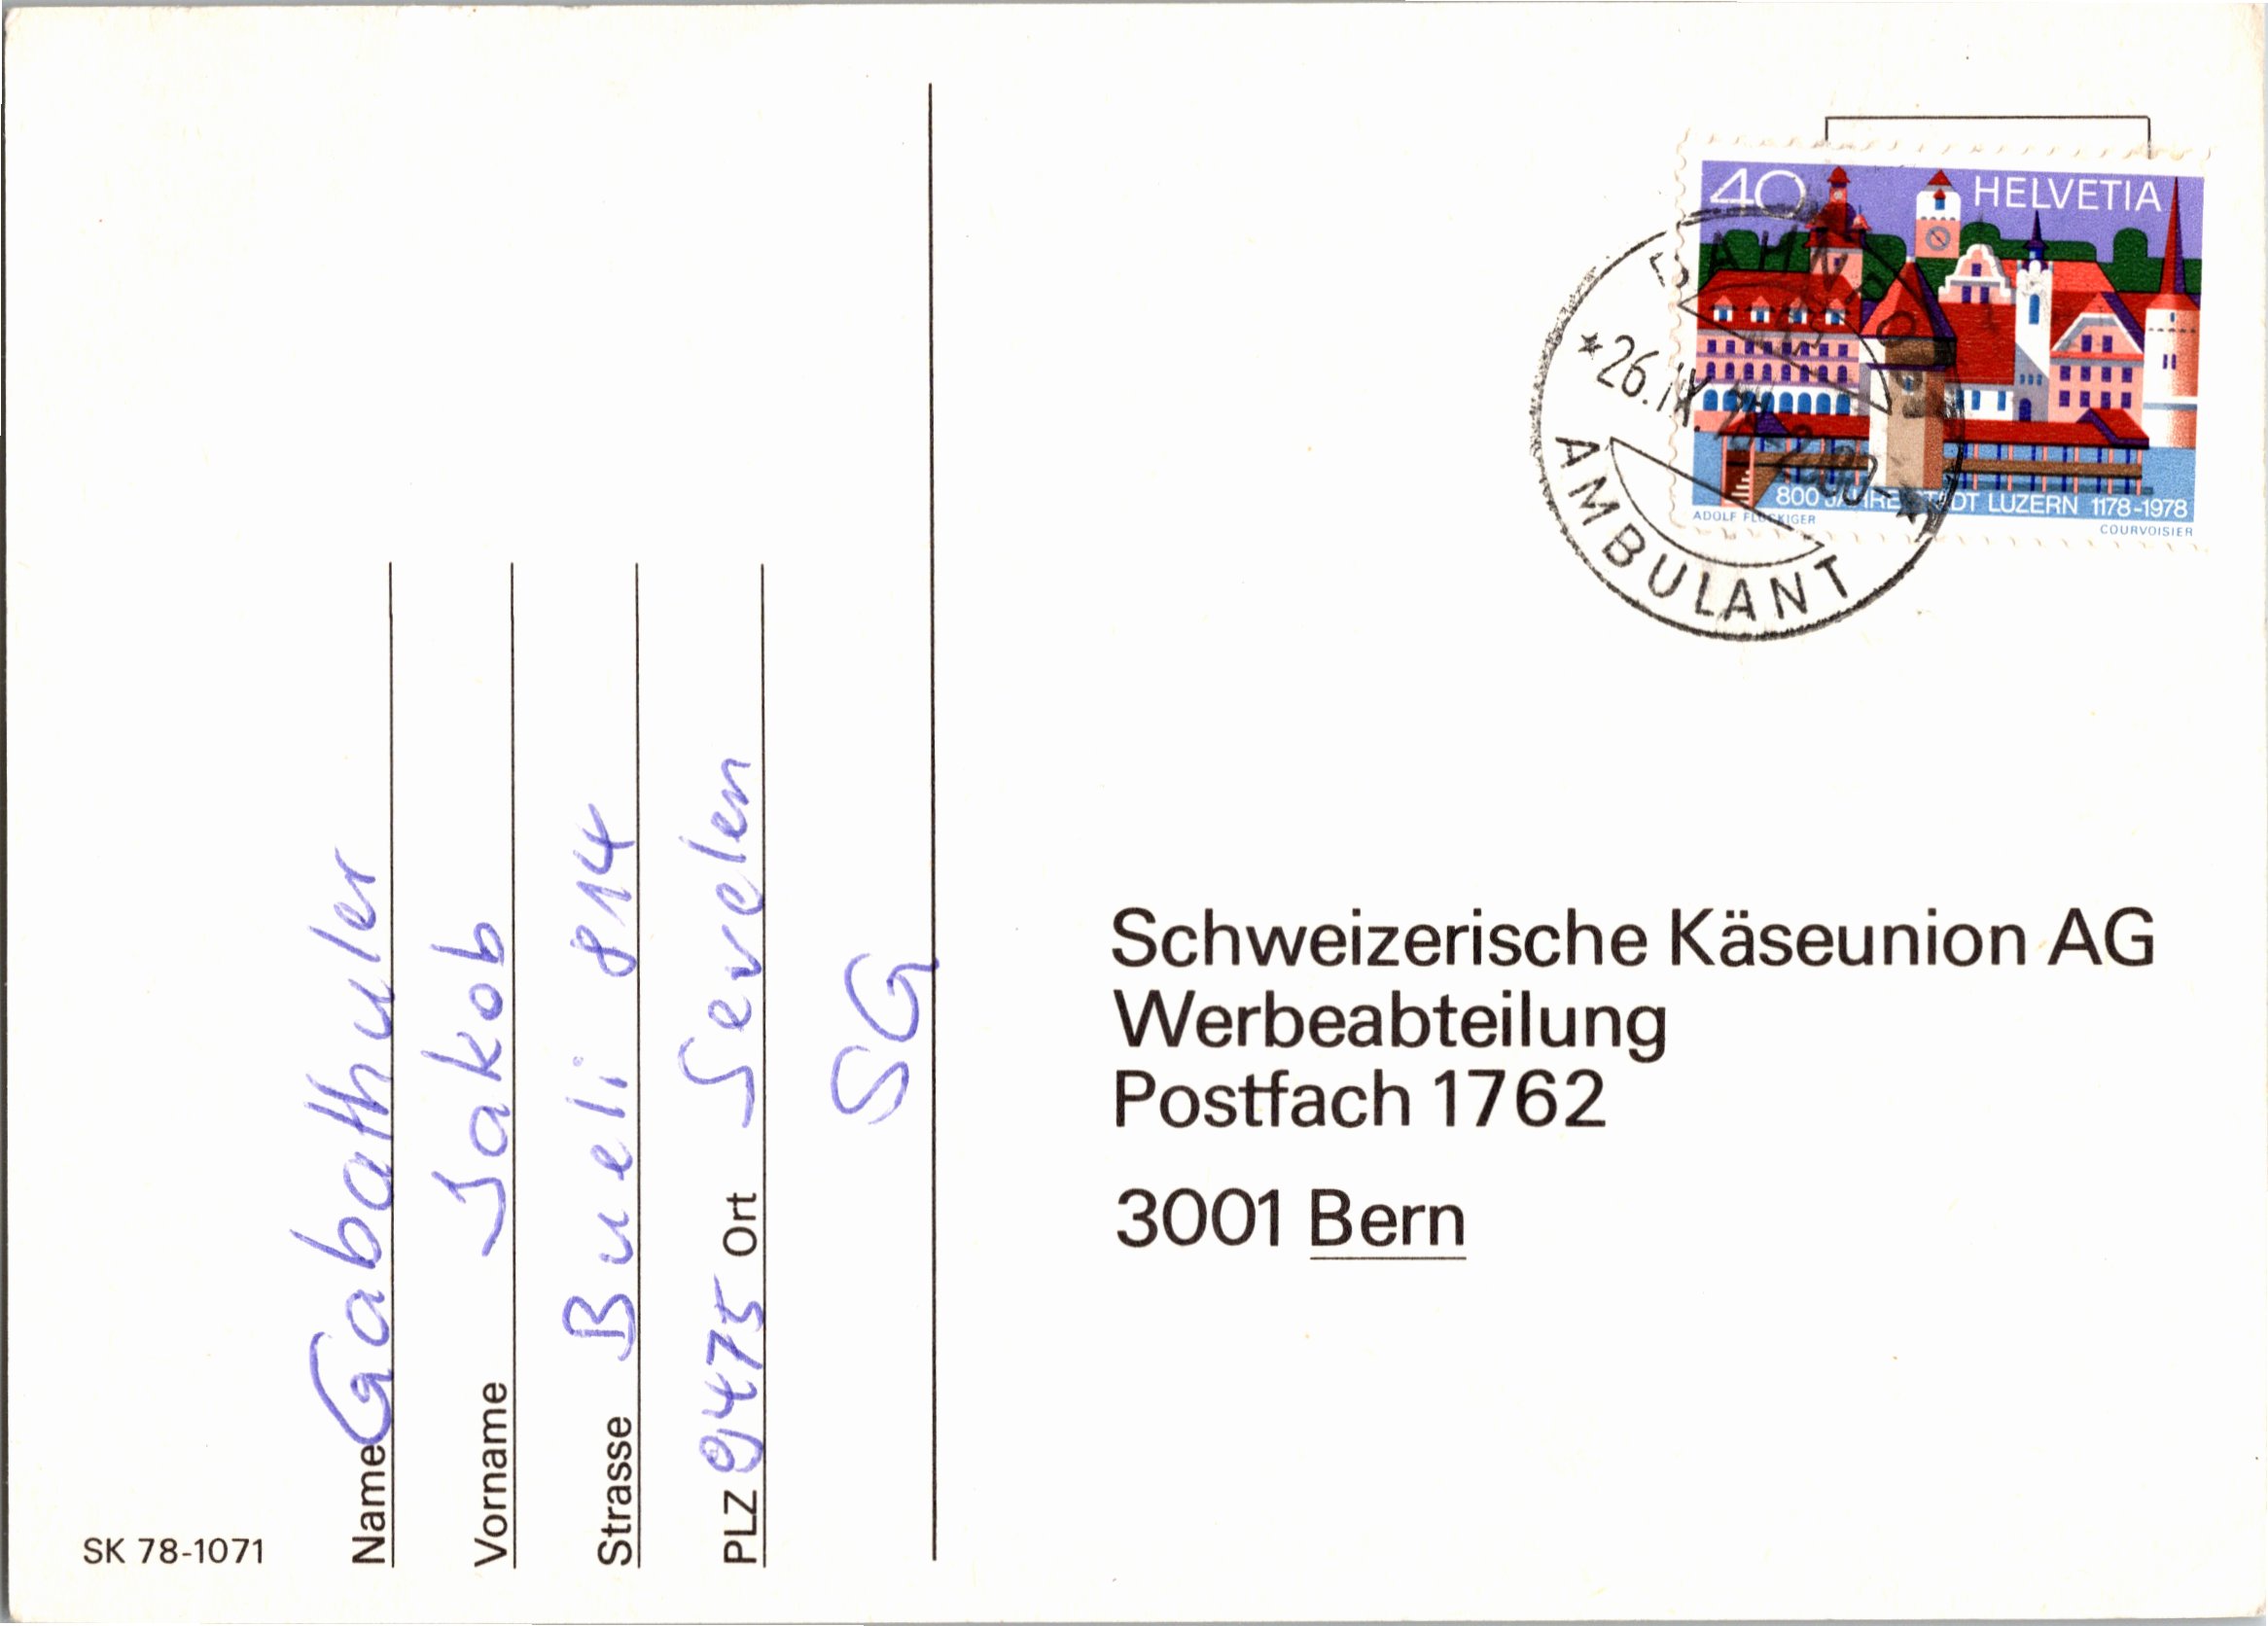 Name Gabathuler
Vorname Jakob
Strasse Bueli 814
PLZ 9475 Ort Sevelen
SG
SK 78-1071
40 HELVETIA
800 JAHRE STADT LUZERN 1178-1978
ADOLF FLÜCKIGER
COURVOISIER
BAHNPOST
*26.IX
AMBULANT
Schweizerische Käseunion AG
Werbeabteilung
Postfach 1762
3001 Bern